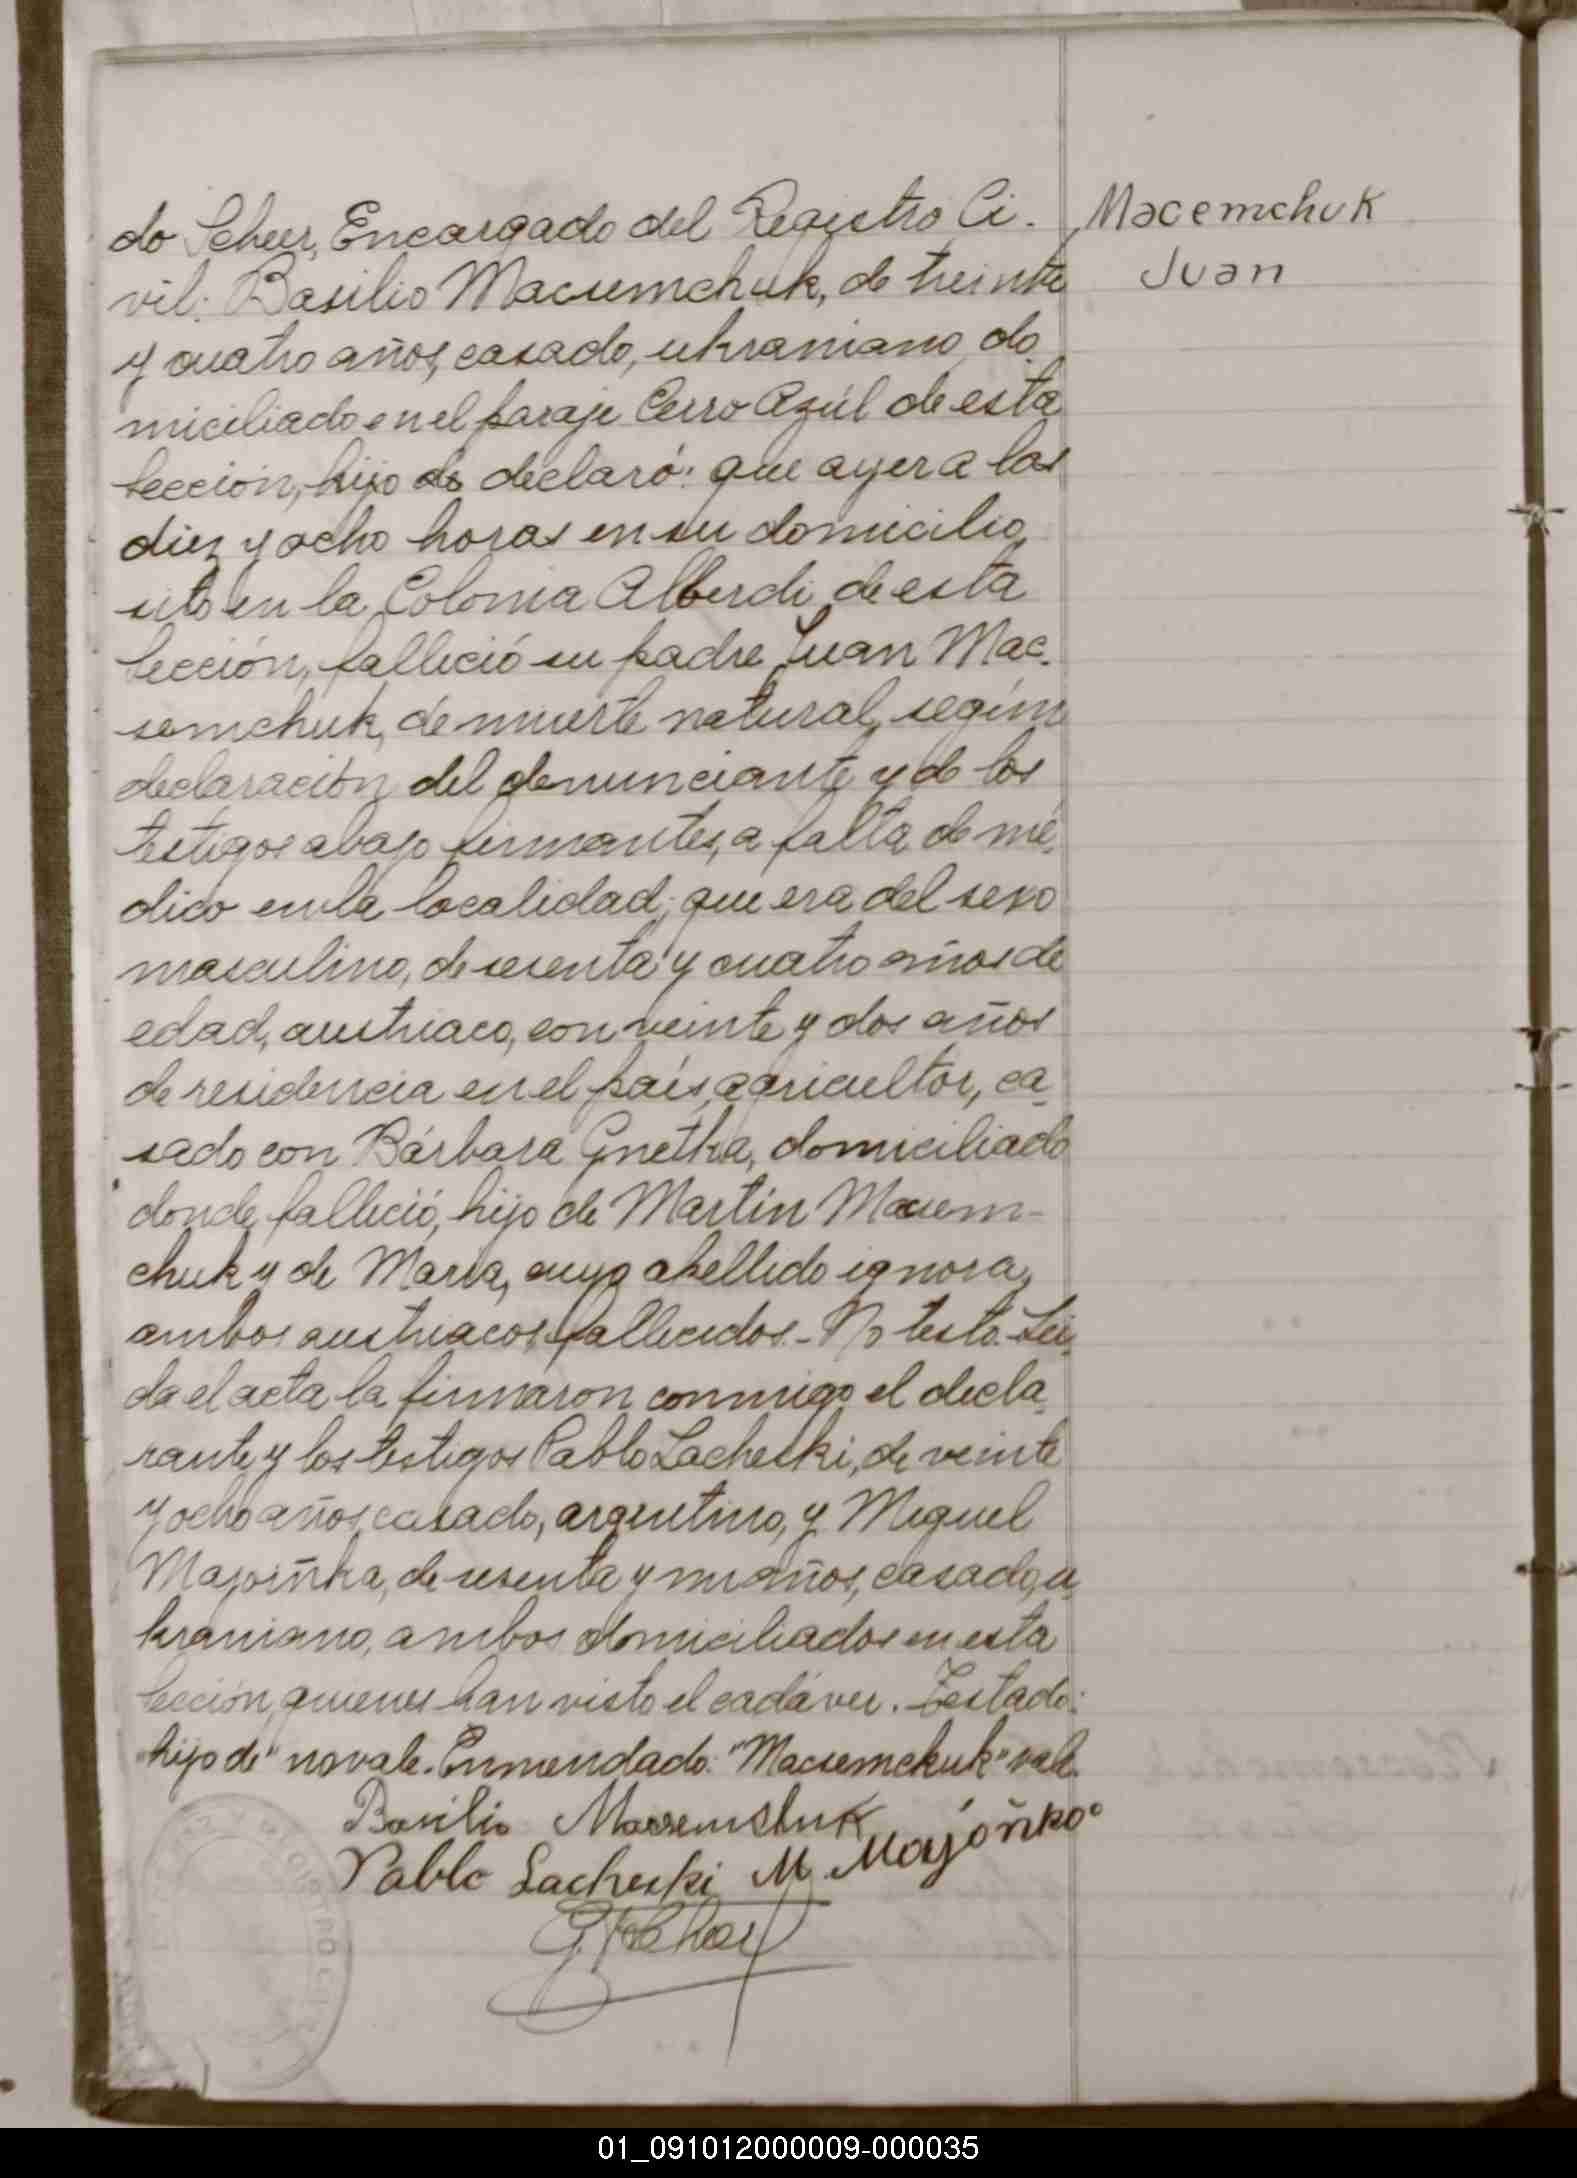 do Scheer, Encargado del Registro Ci-
vil: Basilio Macsemchuk, de treinta
y cuatro años, casado, ukraniano, do-
miciliado en el paraje Cerro Azúl de esta
Sección, hijo de declaró: que ayer a las
diez y ocho horas en su domicilio,
sito en la Colonia Alberdi de esta
Sección, falleció su padre Juan Mac-
semchuk, de muerte natural, según
declaración del denunciante y de los
testigos abajo firmantes, a falta de mé-
dico en la localidad; que era del sexo
masculino, de sesenta y cuatro años de
edad, austriaco, con veinte y dos años
de residencia en el país, agricultor, ca-
sado con Bárbara Gnetka, domiciliado
donde falleció, hijo de Martín Macsem-
chuk y de María, cuyo apellido ignora,
ambos austriacos, fallecidos.- No testó. Leí-
da el acta la firmaron conmigo el decla-
rante y los testigos Pablo Lacheski, de veinte
y ocho años, casado, argentino, y Miguel
Majoiñka, de sesenta y un años, casado, u-
kraniano, ambos domiciliados en esta
Sección, quienes han visto el cadáver. Testado:
"hijo de" no vale. Enmendado: "Macsemchuk" vale.
Basilio Macsemshuk
Pablo Lacheski M. Majóñko
G. Scheer
Macemchuk
Juan
REGISTRO
01_091012000009-000035